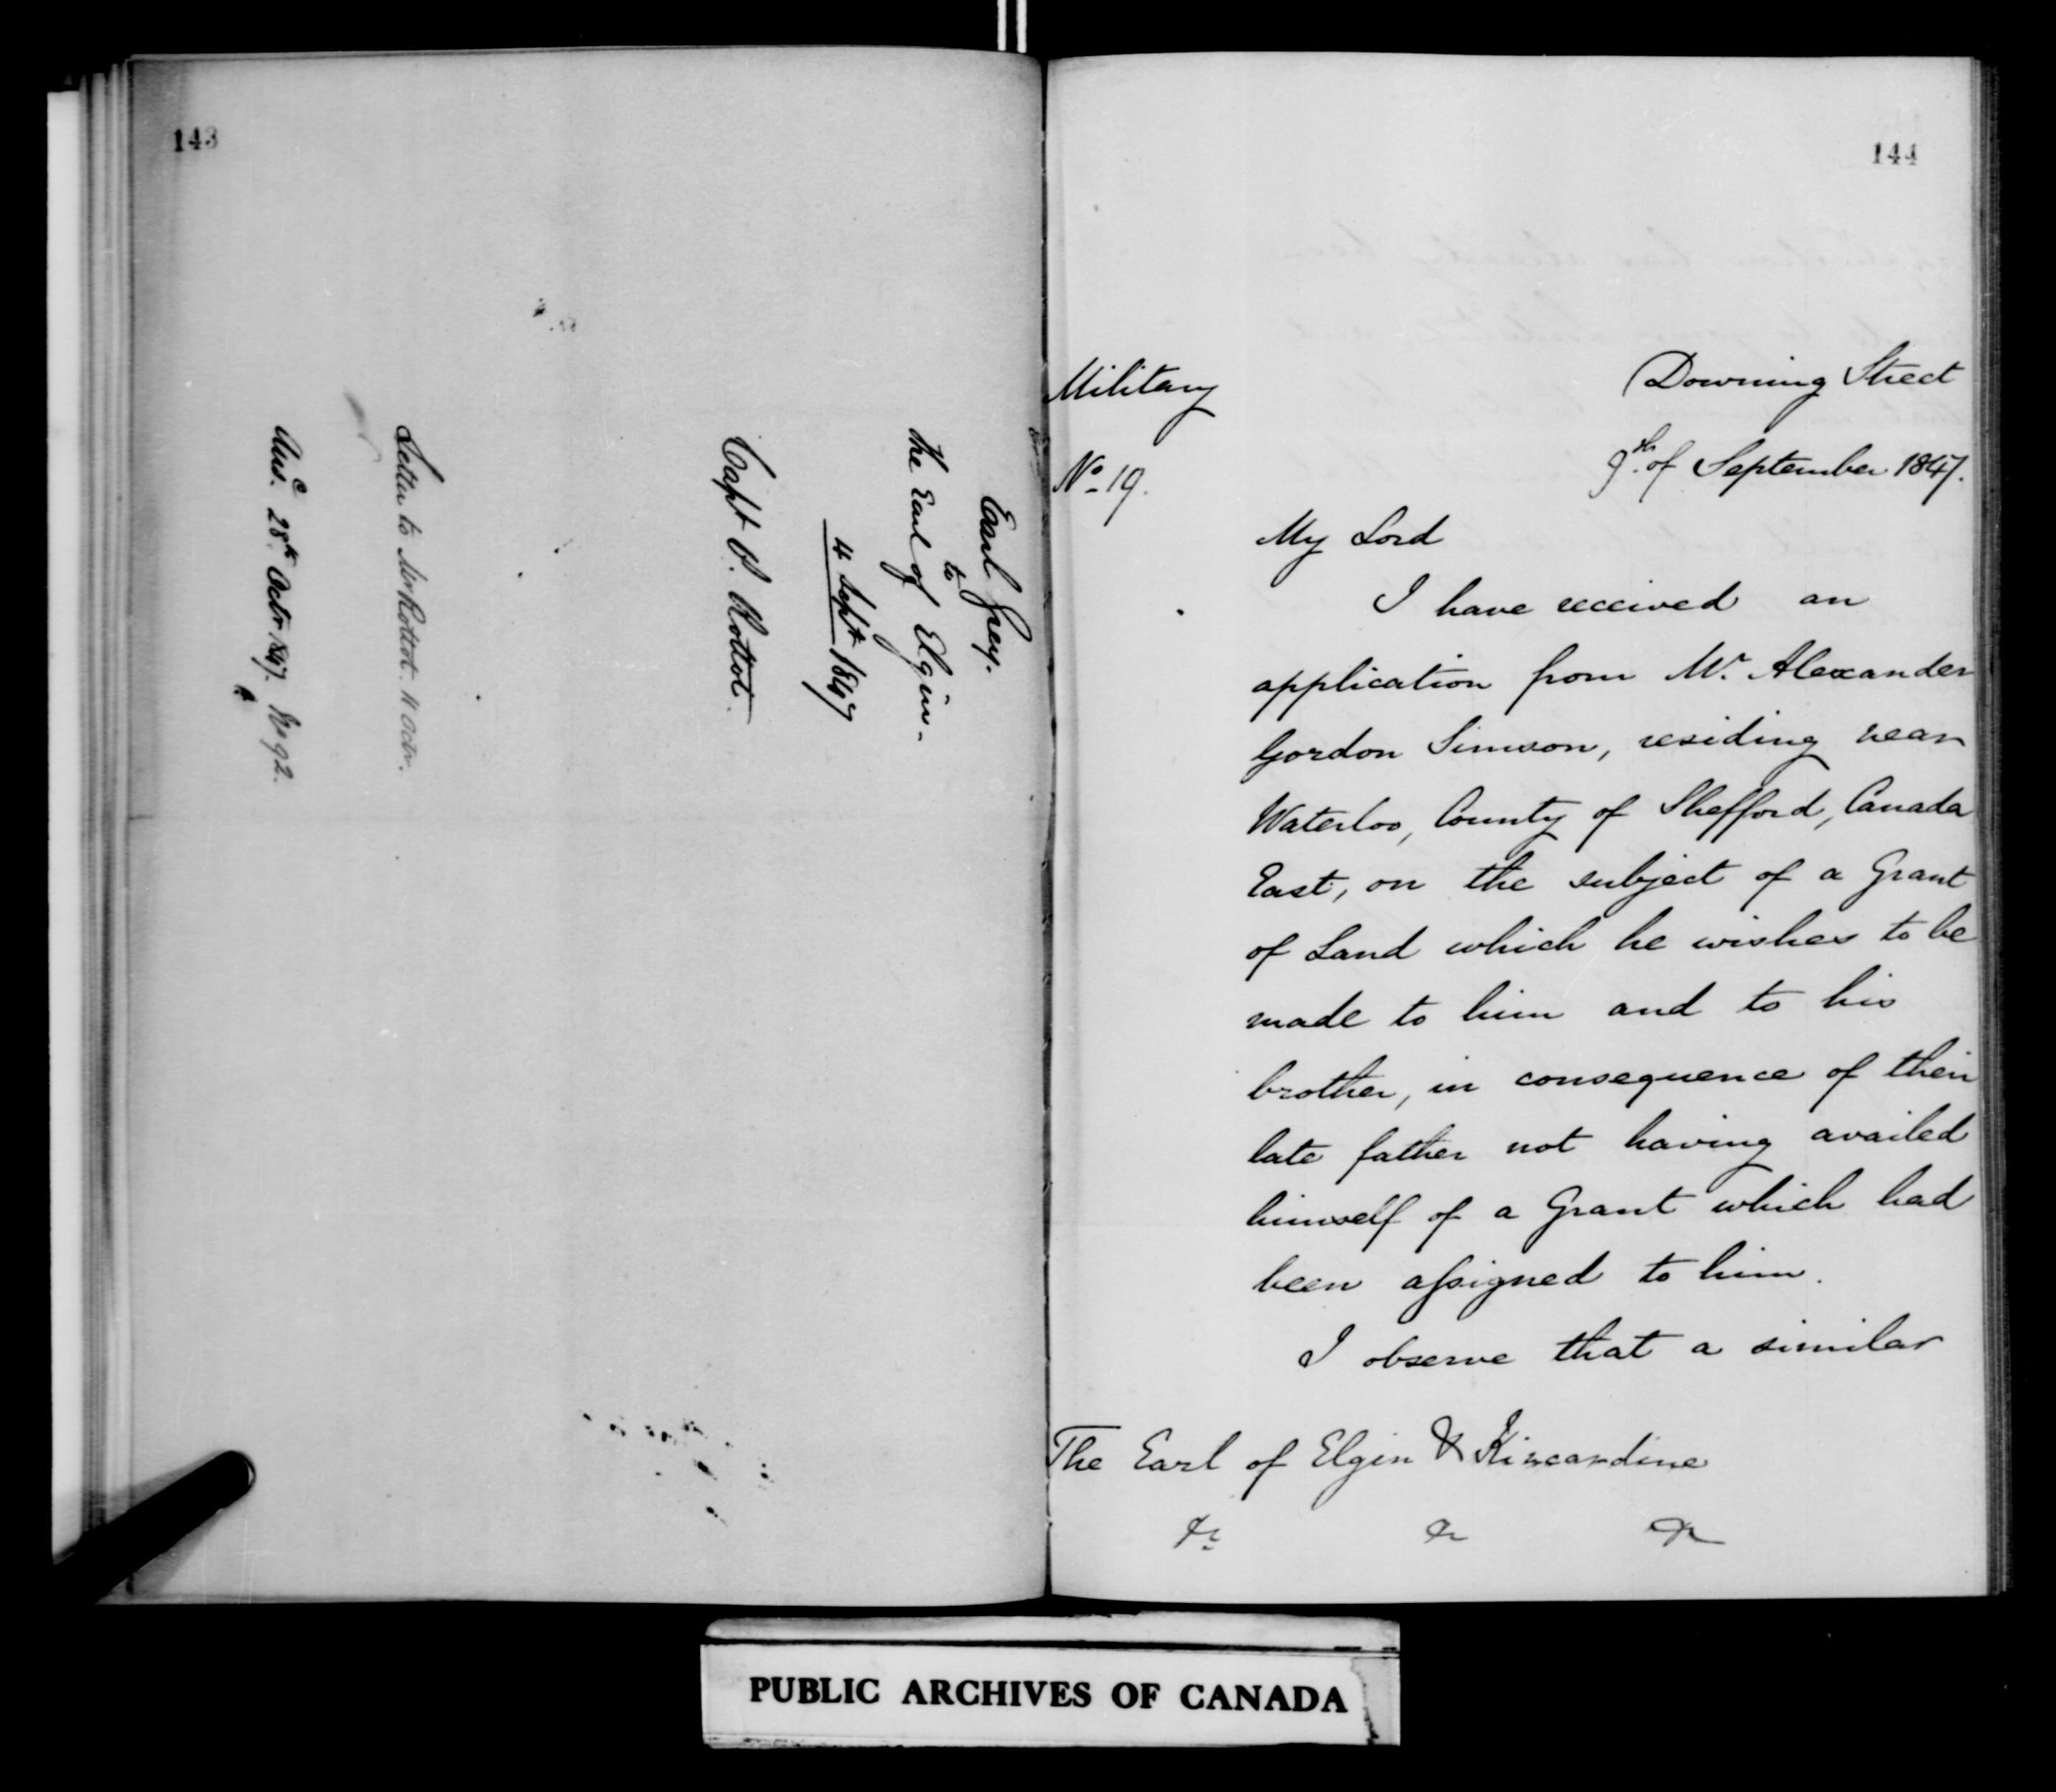 143
Earl Grey.
to
the Earl of Elgin.
4 Sept 1847
Capt P. Rottot.
Letter to Mr Rottot. 11 Octr.
Ansd. 28th Octr 1847. No 92.
144
Military
Downing Street
No 19.
9th. of September 1847.
My Lord
I have received an
application from Mr. Alexander
Gordon Simson, residing near
Waterloo, County of Shefford, Canada
East, on the subject of a Grant
of Land which he wishes to be
made to him and to his
brother, in consequence of their
late father not having availed
himself of a Grant which had
been assigned to him.
I observe that a similar
The Earl of Elgin & Kincardine
&c &c &c
PUBLIC ARCHIVES OF CANADA